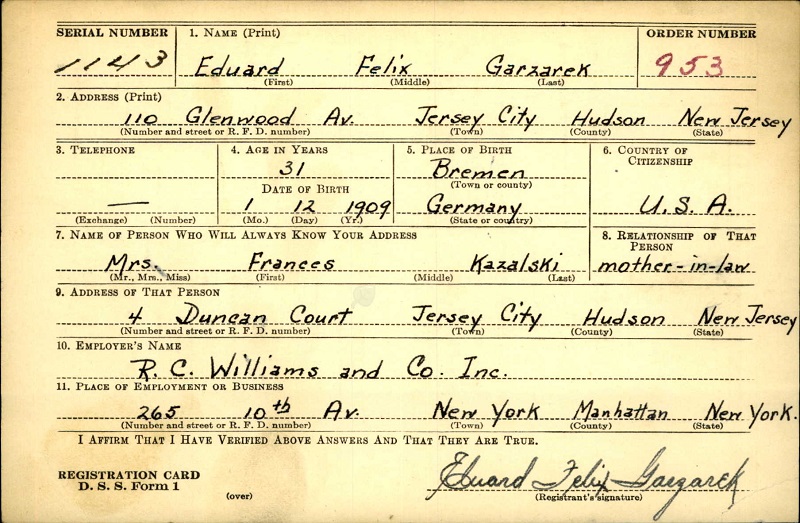 SERIAL NUMBER 1. NAME (Print) ORDER NUMBER
1143 Eduard Felix Garzarek 953
(First) (Middle) (Last)
2. ADDRESS (Print)
110 Glenwood Av. Jersey City Hudson New Jersey
(Number and street or R. F. D. number) (Town) (County) (State)
3. TELEPHONE 4. AGE IN YEARS 5. PLACE OF BIRTH 6. COUNTRY OF CITIZENSHIP
31 Bremen
DATE OF BIRTH (Town or county)
— 1 12 1909 Germany U. S. A.
(Exchange) (Number) (Mo.) (Day) (Yr.) (State or country)
7. NAME OF PERSON WHO WILL ALWAYS KNOW YOUR ADDRESS 8. RELATIONSHIP OF THAT PERSON
Mrs. Frances Kazalski mother-in-law
(Mr., Mrs., Miss) (First) (Middle) (Last)
9. ADDRESS OF THAT PERSON
4 Duncan Court Jersey City Hudson New Jersey
(Number and street or R. F. D. number) (Town) (County) (State)
10. EMPLOYER'S NAME
R. C. Williams and Co. Inc.
11. PLACE OF EMPLOYMENT OR BUSINESS
265 10th Av. New York Manhattan New York.
(Number and street or R. F. D. number) (Town) (County) (State)
I AFFIRM THAT I HAVE VERIFIED ABOVE ANSWERS AND THAT THEY ARE TRUE.
REGISTRATION CARD
D. S. S. Form 1 Eduard Felix Garzarek
(over) (Registrant's signature)